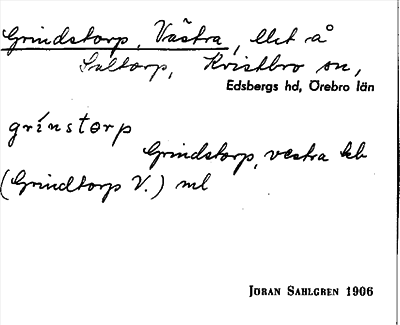 Grindstorp, Västra, llet å
Saltorp, Kvistbro sn,
Edsbergs hd, Örebro län
grínstɵrp
Grindstorp, vestra kb
(Grindtorp V.) ml
JÖRAN SAHLGREN 1906